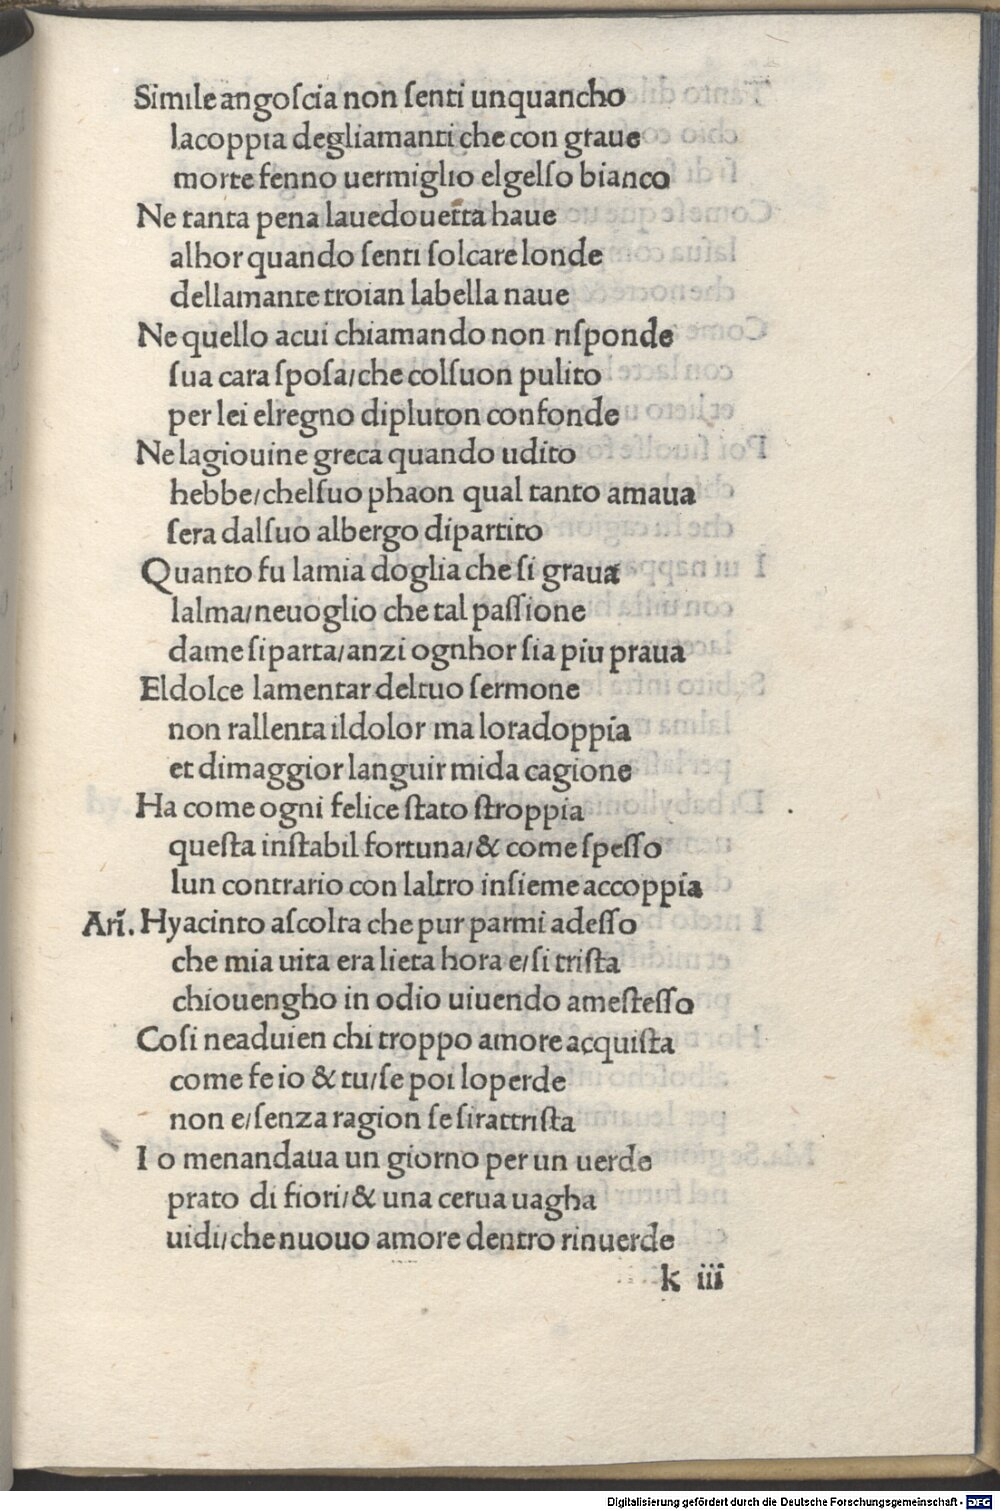 Simile angoſcia non ſenti unquancho
lacoppia degliamanti che con graue
morte fenno uermiglio elgelſo bianco
Ne tanta pena lauedouetta haue
alhor quando ſenti ſolcare londe
dellamante troian labella naue
Ne quello acui chiamando non riſponde
ſua cara ſpoſa/che colſuon pulito
per lei elregno dipluton confonde
Ne lagiouine greca quando udito
hebbe/chelſuo phaon qual tanto amaua
ſera dalſuo albergo dipartito
Quanto fu lamia doglia che ſi graua
lalma/neuoglio che tal paſſione
dame ſiparta/anzi ognhor ſia piu praua
Eldolce lamentar deltuo ſermone
non rallenta ildolor ma loradoppia
et dimaggior languir mida cagione
Ha come ogni felice ſtato ſtroppia
queſta inſtabil fortuna/& come ſpeſſo
lun contrario con laltro inſieme accoppia
Ari. Hyacinto aſcolta che pur parmi adeſſo
che mia uita era lieta hora e/ſi triſta
chiouengho in odio uiuendo ameſteſſo
Coſi neaduien chi troppo amore acquiſta
come fe io & tu/ſe poi loperde
non e/ſenza ragion ſe ſirattriſta
I o menandaua un giorno per un uerde
prato di fiori/& una cerua uagha
uidi/che nuouo amore dentro rinuerde
k iii
Digitalisierung gefördert durch die Deutsche Forschungsgemeinschaft - DFG